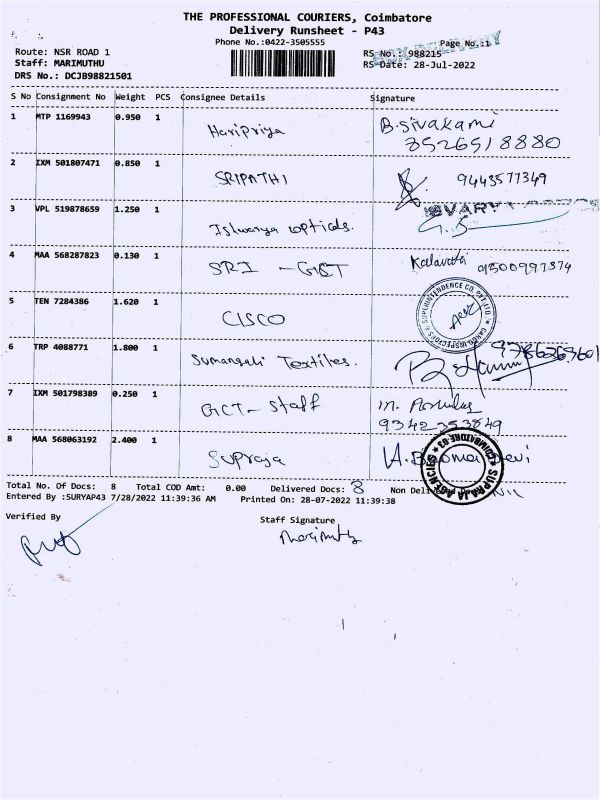 THE PROFESSIONAL COURIERS, Coimbatore
Delivery Runsheet - P43
Phone No.:0422-3505555
Page No.:1
Route: NSR ROAD 1
RS No.: 988215
Staff: MARIMUTHU
RS Date: 28-Jul-2022
DRS No.: DCJB98821501
S No Consignment No Weight PCS Consignee Details Signature
1 MTP 1169943 0.950 1 Haripriya B.Sivakami
8526518880
2 IXM 501807471 0.850 1 SRIPATHI 9443577349
3 VPL 519878659 1.250 1 Ishwarya opticals.
4 MAA 568287823 0.130 1 SRI - GCT Kalavathi 91500997374
5 TEN 7284386 1.620 1 CISCO
6 TRP 4088771 1.800 1 Sumangali Textiles.
7 IXM 501798389 0.250 1 GCT - Staff
9342353849
8 MAA 568063192 2.400 1 Supraja A.Booma Devi
SUPRAJA AGENCIES COIMBATORE-03
Total No. Of Docs: 8 Total COD Amt: 0.00 Delivered Docs: 8 Non Delivered Docs: Nil
Entered By :SURYAP43 7/28/2022 11:39:36 AM Printed On: 28-07-2022 11:39:38
Verified By
Staff Signature
Marimuthu